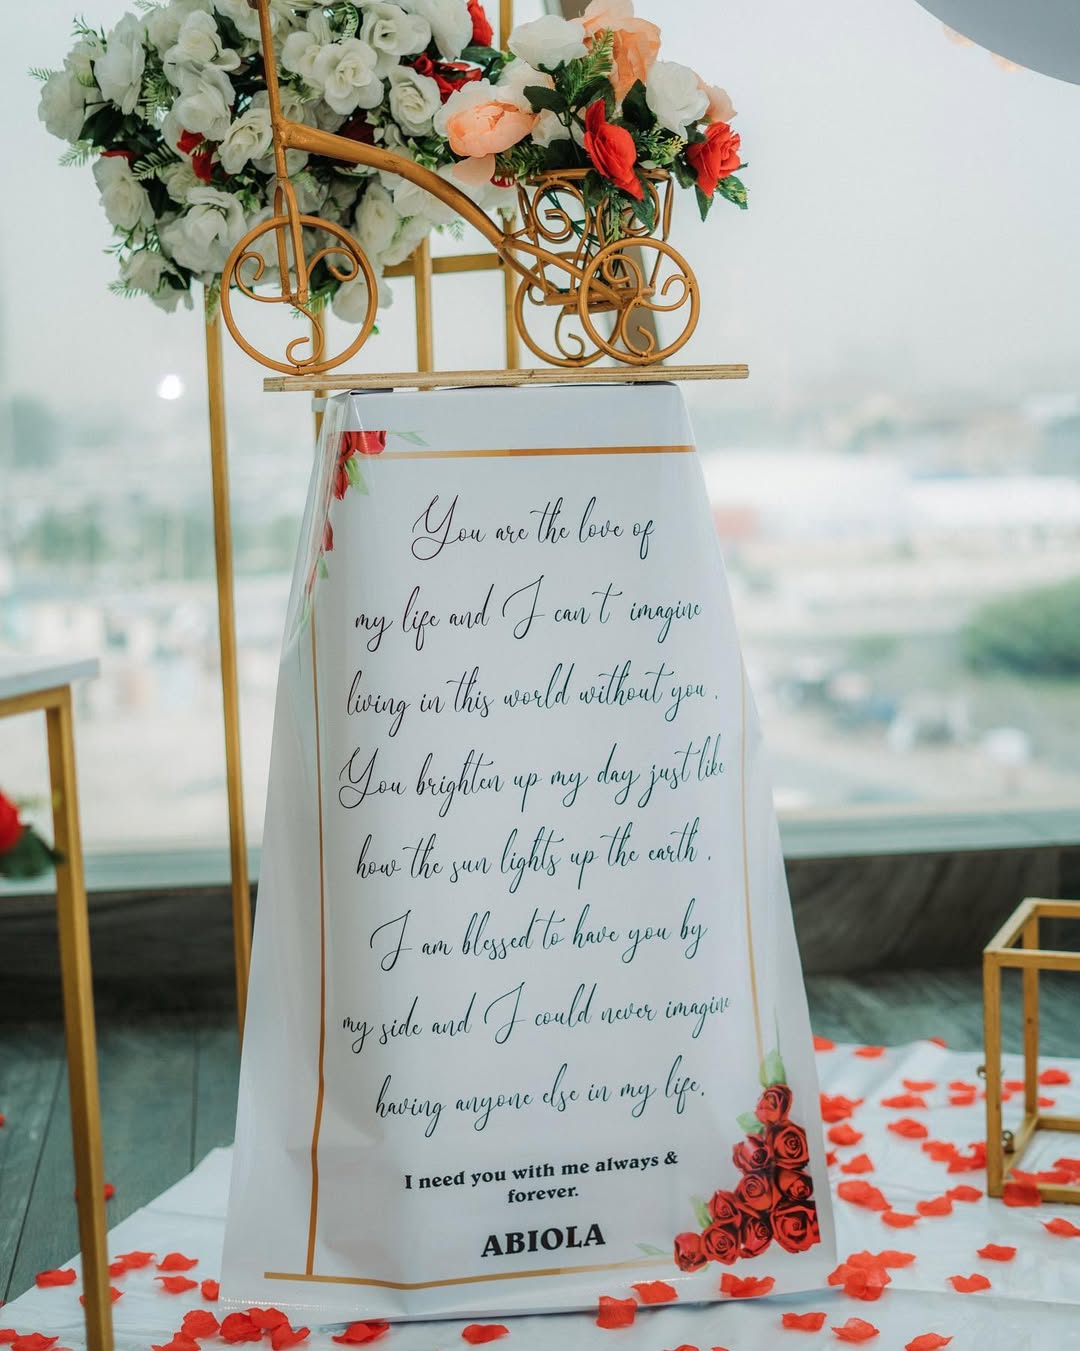 You are the love of
my life and I can't imagine
living in this world without you.
You brighten up my day just like
how the sun lights up the earth.
I am blessed to have you by
my side and I could never imagine
having anyone else in my life.
I need you with me always &
forever.
ABIOLA